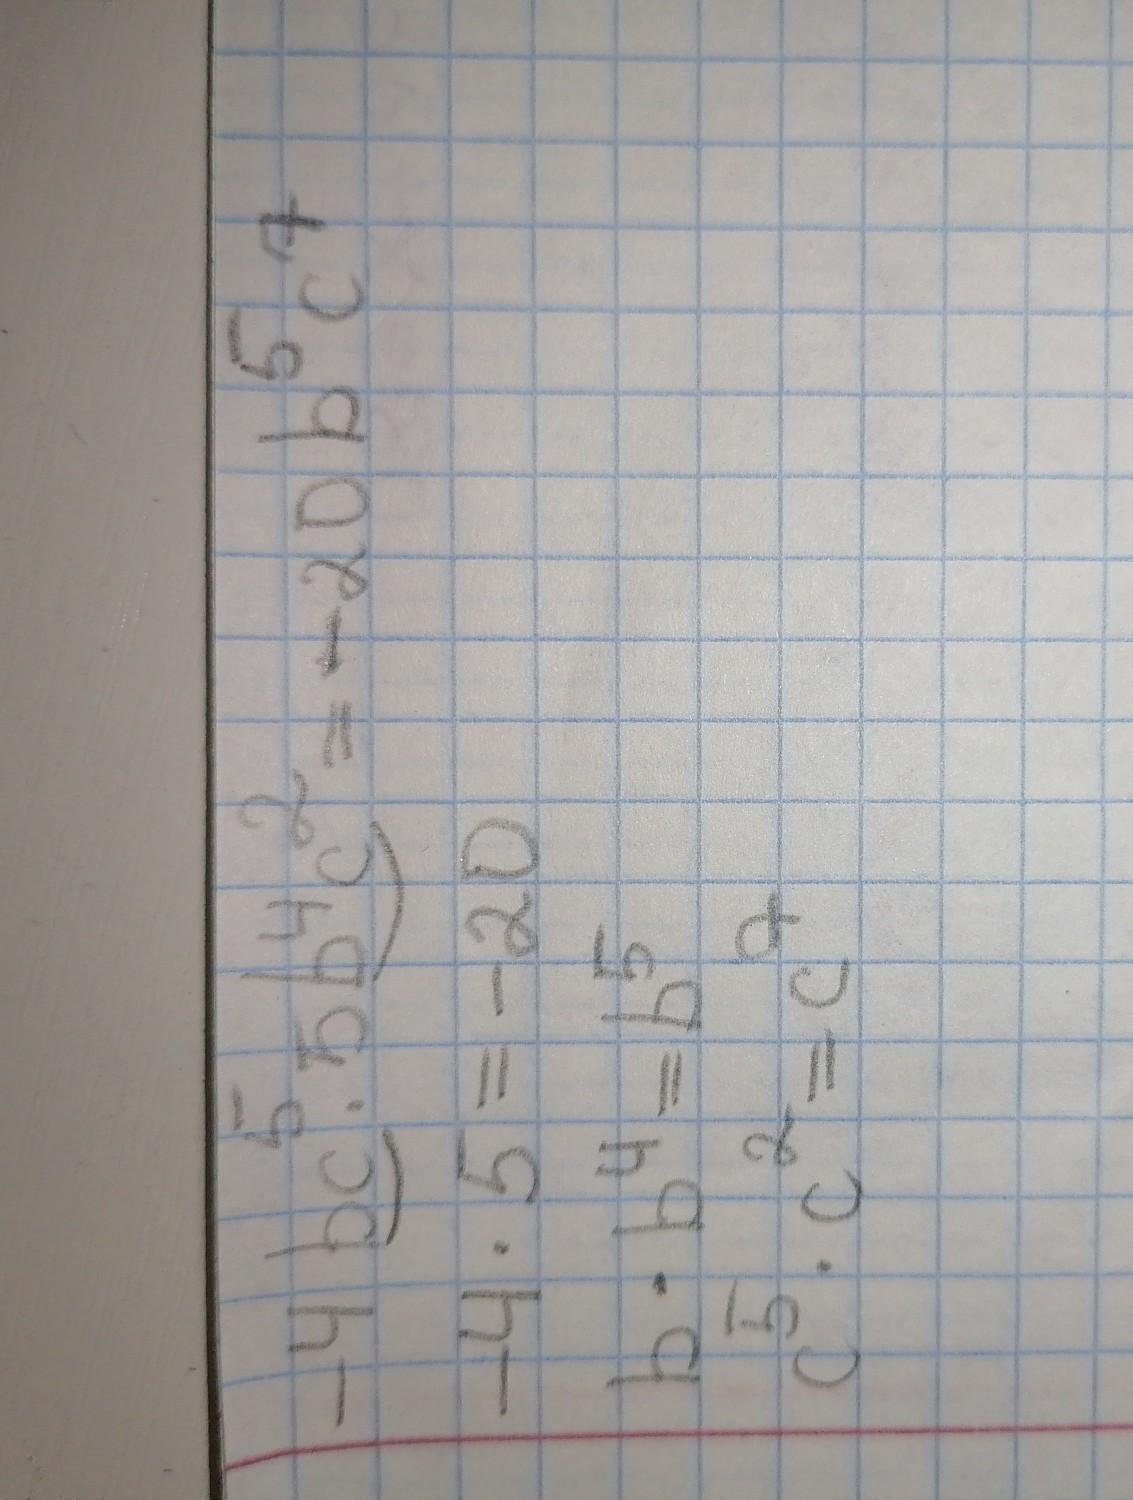 -4bc⁵·5b⁴c² = -20b⁵c⁷
-4·5 = -20
b·b⁴ = b⁵
c⁵·c² = c⁷